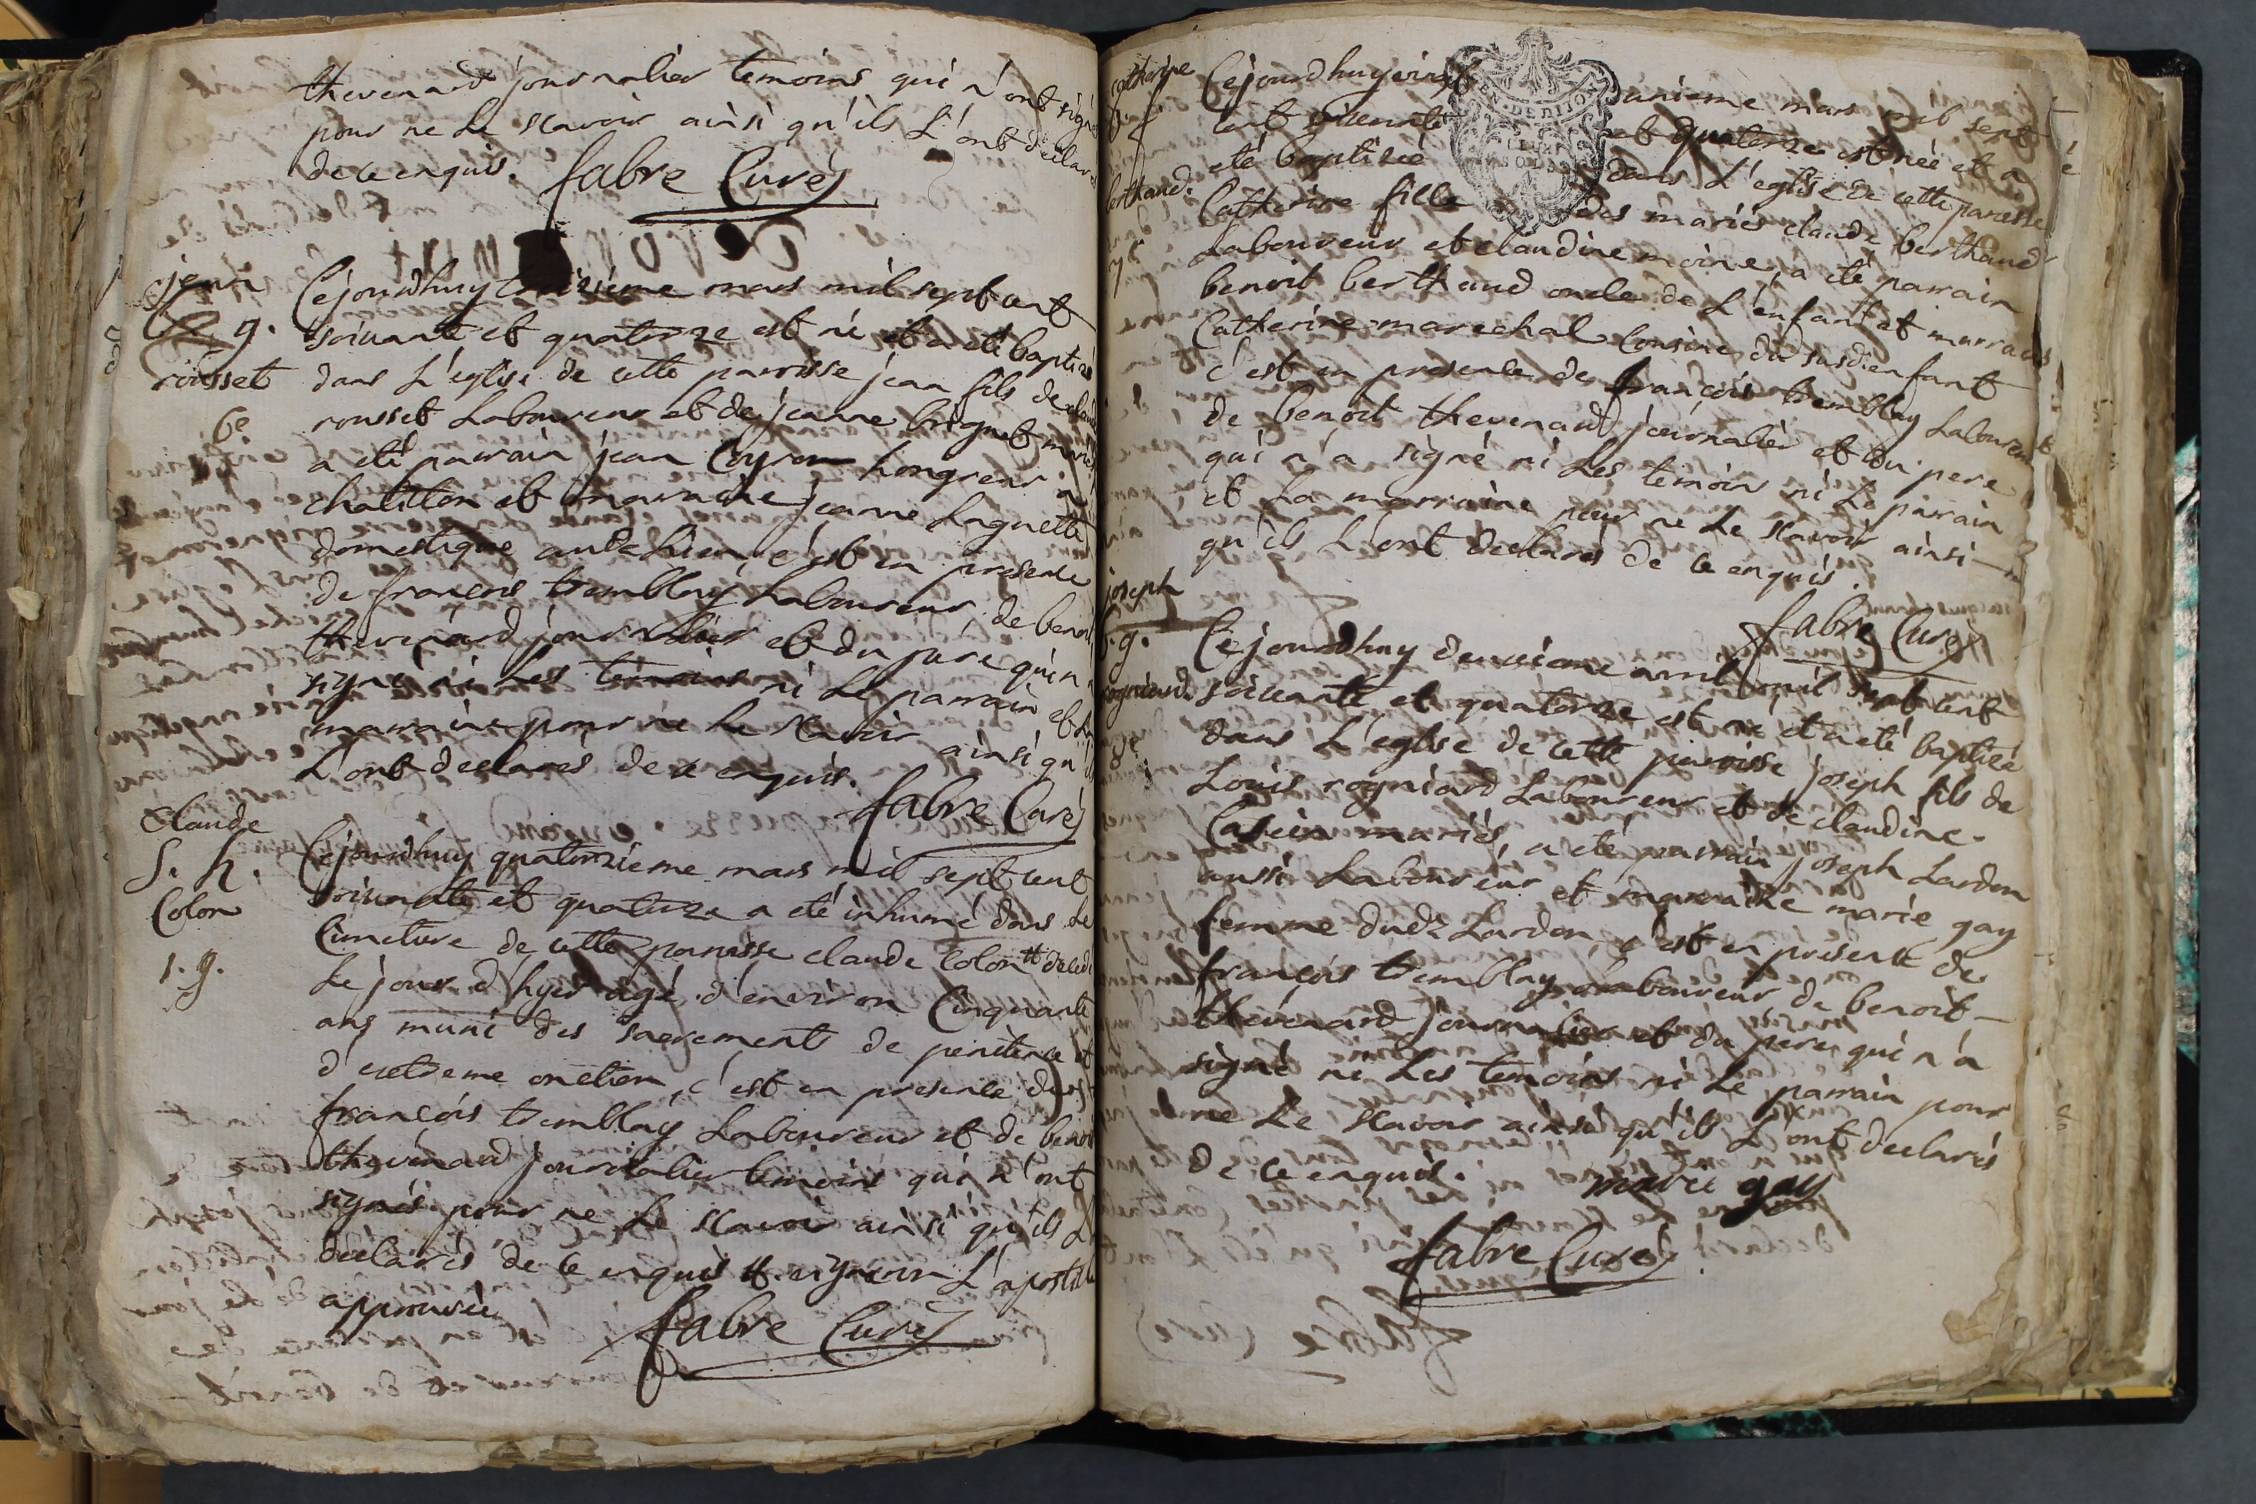 thevenard journalier temoins qui n'ont signé
pour ne le scavoir ainsi qu'ils l'ont déclarés
de ce enquis. fabre Curé
jean
g.
rousset
6e
Cejourdhuy treizième mars mil sept cent
soixante et quatorze est né et a été baptizé
dans l'eglise de cette paroisse jean fils de claude
rousset Laboureur et de jeanne briguet mariés
a été parrain jean Coyron hongreur a
chatillon et marraine jeanne Laguette
domestique audt lieu, c'est en presence
de françois tremblay Laboureur, de benoit
thevenard journalier et du pere qui n'a
signé ni les témoins ni le parrain et la
marraine pour ne le scavoir ainsi qu'ils
l'ont declarés de ce enquis.
fabre Curé
Claude
S. h.
Colon
1. g.
Cejourdhuy quatorzième mars mil sept cent
soixante et quatorze a été inhumé dans le
Cimetiere de cette paroisse claude Colon decedé
le jour d'hyer agé d'environ Cinquante
ans muni des sacrements de penitence et
d'extreme onction, c'est en presence de
françois tremblay Laboureur et de benoit
thevenard journalier temoins qui n'ont
signés pour ne le scavoir ainsi qu'ils l'
declarés de ce enquis l'apostille
approuvée
fabre Curé
Catherine
f.
berthaud.
7e
Cejourdhuy vingt unieme mars mil sept
cent soixante et quatorze est née et a
eté baptizée dans l'eglise de cette paroisse
Catherine fille des mariés claude berthaud
Laboureur et claudine moine, a été parrain
benoit berthaud oncle de l'enfant et marraine
Catherine marechal Cousine du susd. enfant
c'est en presence de françois tremblay Laboureur
de benoit thevenard journalier et du pere
qui n'a signé ni les temoins ni le parrain
et la marraine pour ne le scavoir ainsi
qu'ils l'ont declarés de ce enquis.
fabre Curé
joseph
f. g.
rogniard
8e
Cejourdhuy deuxieme avril mil sept cent
soixante et quatorze est né et a eté baptizé
dans l'eglise de cette paroisse joseph fils de
Louis rogniard Laboureur et de claudine
mariés, a été parrain joseph Lardon
aussi Laboureur et marraine marie gay
femme dudt Lardon, c'est en presence de
françois tremblay Laboureur de benoit
thevenard journalier et du pere qui n'a
signé ni les temoins ni le parrain pour
ne le scavoir ainsi qu'ils l'ont declarés
de ce enquis. marie gay
fabre Curé
EN. DE DIJON